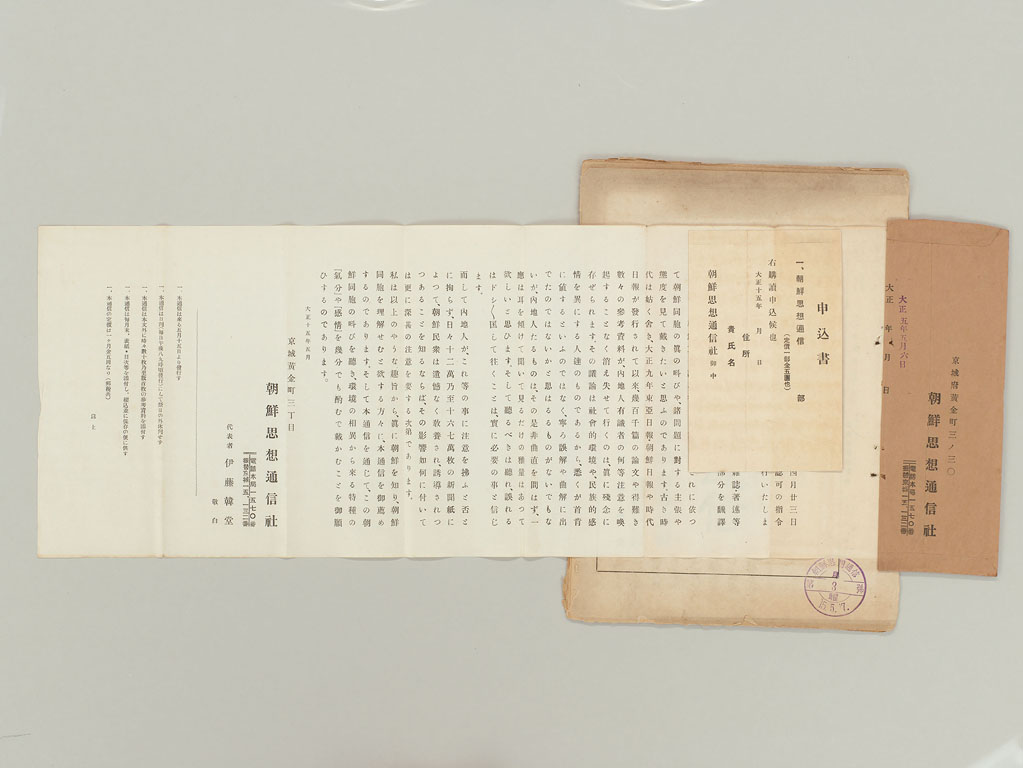 大正五年五月六日
京城府黃金町三ノ三〇
朝鮮思想通信社
電話本局一五七〇番
大正 年 月 日
申込書
一、朝鮮思想通信 部
(定價一部金五圓也)
右購讀申込候也
大正十五年 月 日
住所
貴氏名
朝鮮思想通信社 御中
四月廿三日
認可の指令
行いたしま
雜誌、著述等
部分を飜譯
れに依つ
て朝鮮同胞の眞の叫びや、諸問題に對する主張や
態度を見て戴きたいと思ふのであります。古き時
代は姑く舍き、大正九年東亞日報朝鮮日報や時代
日報が發行されて以來、幾百千篇の論文や得難き
數々の參考資料が、內地人有識者の何等注意を喚
起することなく消え失せて行くのは、眞に殘念に
存ぜられます。その議論は社會的環境や、民族的感
情を異にする人達のものであるから、悉くが首肯
に値するといふのではなく、寧ろ誤解や曲解に出
でたのではないかと思はるるものがないでもな
いが、內地人たるものは、その是非曲直を問はず、一
應は耳を傾けて聞いて見るだけの雅量はあつて
欲しいと思ひます。そして聽るべきは聽れ、誤れる
はドシ〳〵匡して往くことは、實に必要の事と信じ
ます。
而して內地人が、これ等の事に注意を拂ふと否と
に拘らず、日々十二萬乃至十六七萬枚の新聞紙に
よつて、朝鮮民衆は遺憾なく敎養され、誘導されつ
つあることを知るならば、その影響如何に付いて
は更に深甚の注意を要する次第であります。
私は以上のやうな趣旨から、眞に朝鮮を知り、朝鮮
同胞を理解せむと欲する方々に、本通信を御薦め
するのであります。そして本通信を通じて、この朝
鮮同胞の叫びを聽き、環境の相異から來る特種の
『氣分』や『感情』を幾分でも酌むで戴かむことを御願
ひするのであります。
大正十五年五月
京城黃金町三丁目
朝鮮思想通信社
電話本局一五七〇番
代表者 伊藤韓堂
敬白
一、本通信は來る五月十五日より發行す
一、本通信は本文外に時々數十枚乃至數百枚の參考資料を添付す
一、本通信の定價は一ヶ月金五圓なり(郵稅共)
以上
5.7.